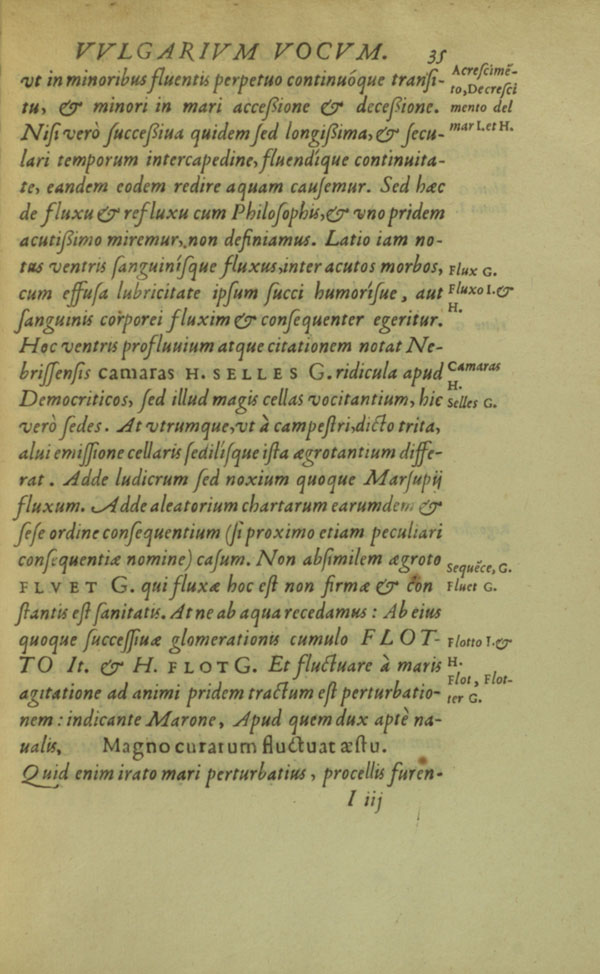 VVLGARIVM VOCVM. 35
vt in minoribus fluentis perpetuo continuóque tranſi-
tu, & minori in mari acceßione & deceßione.
Niſi verò ſucceßiua quidem ſed longißima, & ſecu-
lari temporum intercapedine, fluendíque continuita-
te, eandem eodem redire aquam cauſemur. Sed hæc
de fluxu & refluxu cum Philoſophis, & vno pridem
acutißimo miremur, non definiamus. Latio iam no-
tas ventris ſanguiníſque fluxus, inter acutos morbos,
cum effuſa lubricitate ipſum ſucci humoríſue, aut
ſanguinis corporei fluxim & conſequenter egeritur.
Hoc ventris profluuium atque citationem notat Ne-
briſſenſis camaras H. SELLES G. ridicula apud
Democriticos, ſed illud magis cellas vocitantium, hic
verò ſedes. At vtrumque, vt à campeſtri, dicto trita,
alui emiſſione cellaris ſedilíſque iſta ægrotantium diffe-
rat. Adde ludicrum ſed noxium quoque Marſupij
fluxum. Adde aleatorium chartarum earumdem &
ſeſe ordine conſequentium (ſi proximo etiam peculiari
conſequentiæ nomine) caſum. Non abſimilem ægroto
FLVET G. qui fluxæ hoc eſt non firmæ & con
ſtantis eſt ſanitatis. At ne ab aqua recedamus: Ab eius
quoque ſucceſſiuæ glomerationis cumulo FLOT-
TO It. & H. FLOT G. Et fluctuare à maris
agitatione ad animi pridem tractum eſt perturbatio-
nem: indicante Marone, Apud quem dux aptè na-
ualis, Magno curarum fluctuat æſtu.
Quid enim irato mari perturbatius, procellis furen-
I iij
Acreſcimē-
to, Decreſci
mento del
mar I. et H.
Flux G.
Fluxo I. &
H.
Camaras
H.
Selles G.
Sequēce, G.
Fluet G.
Flotto I. &
H.
Flot, Flot-
ter G.